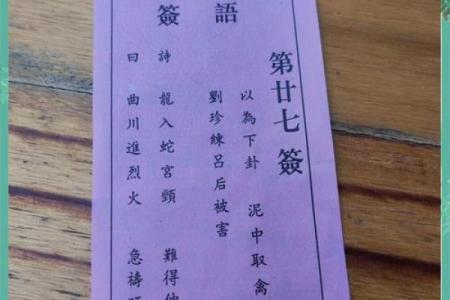 簽語
第廿七簽
以為下卦 泥中取禽
劉珍練呂后被害
詩 龍入蛇宮頸 難得
曰 曲川進烈火 急禱